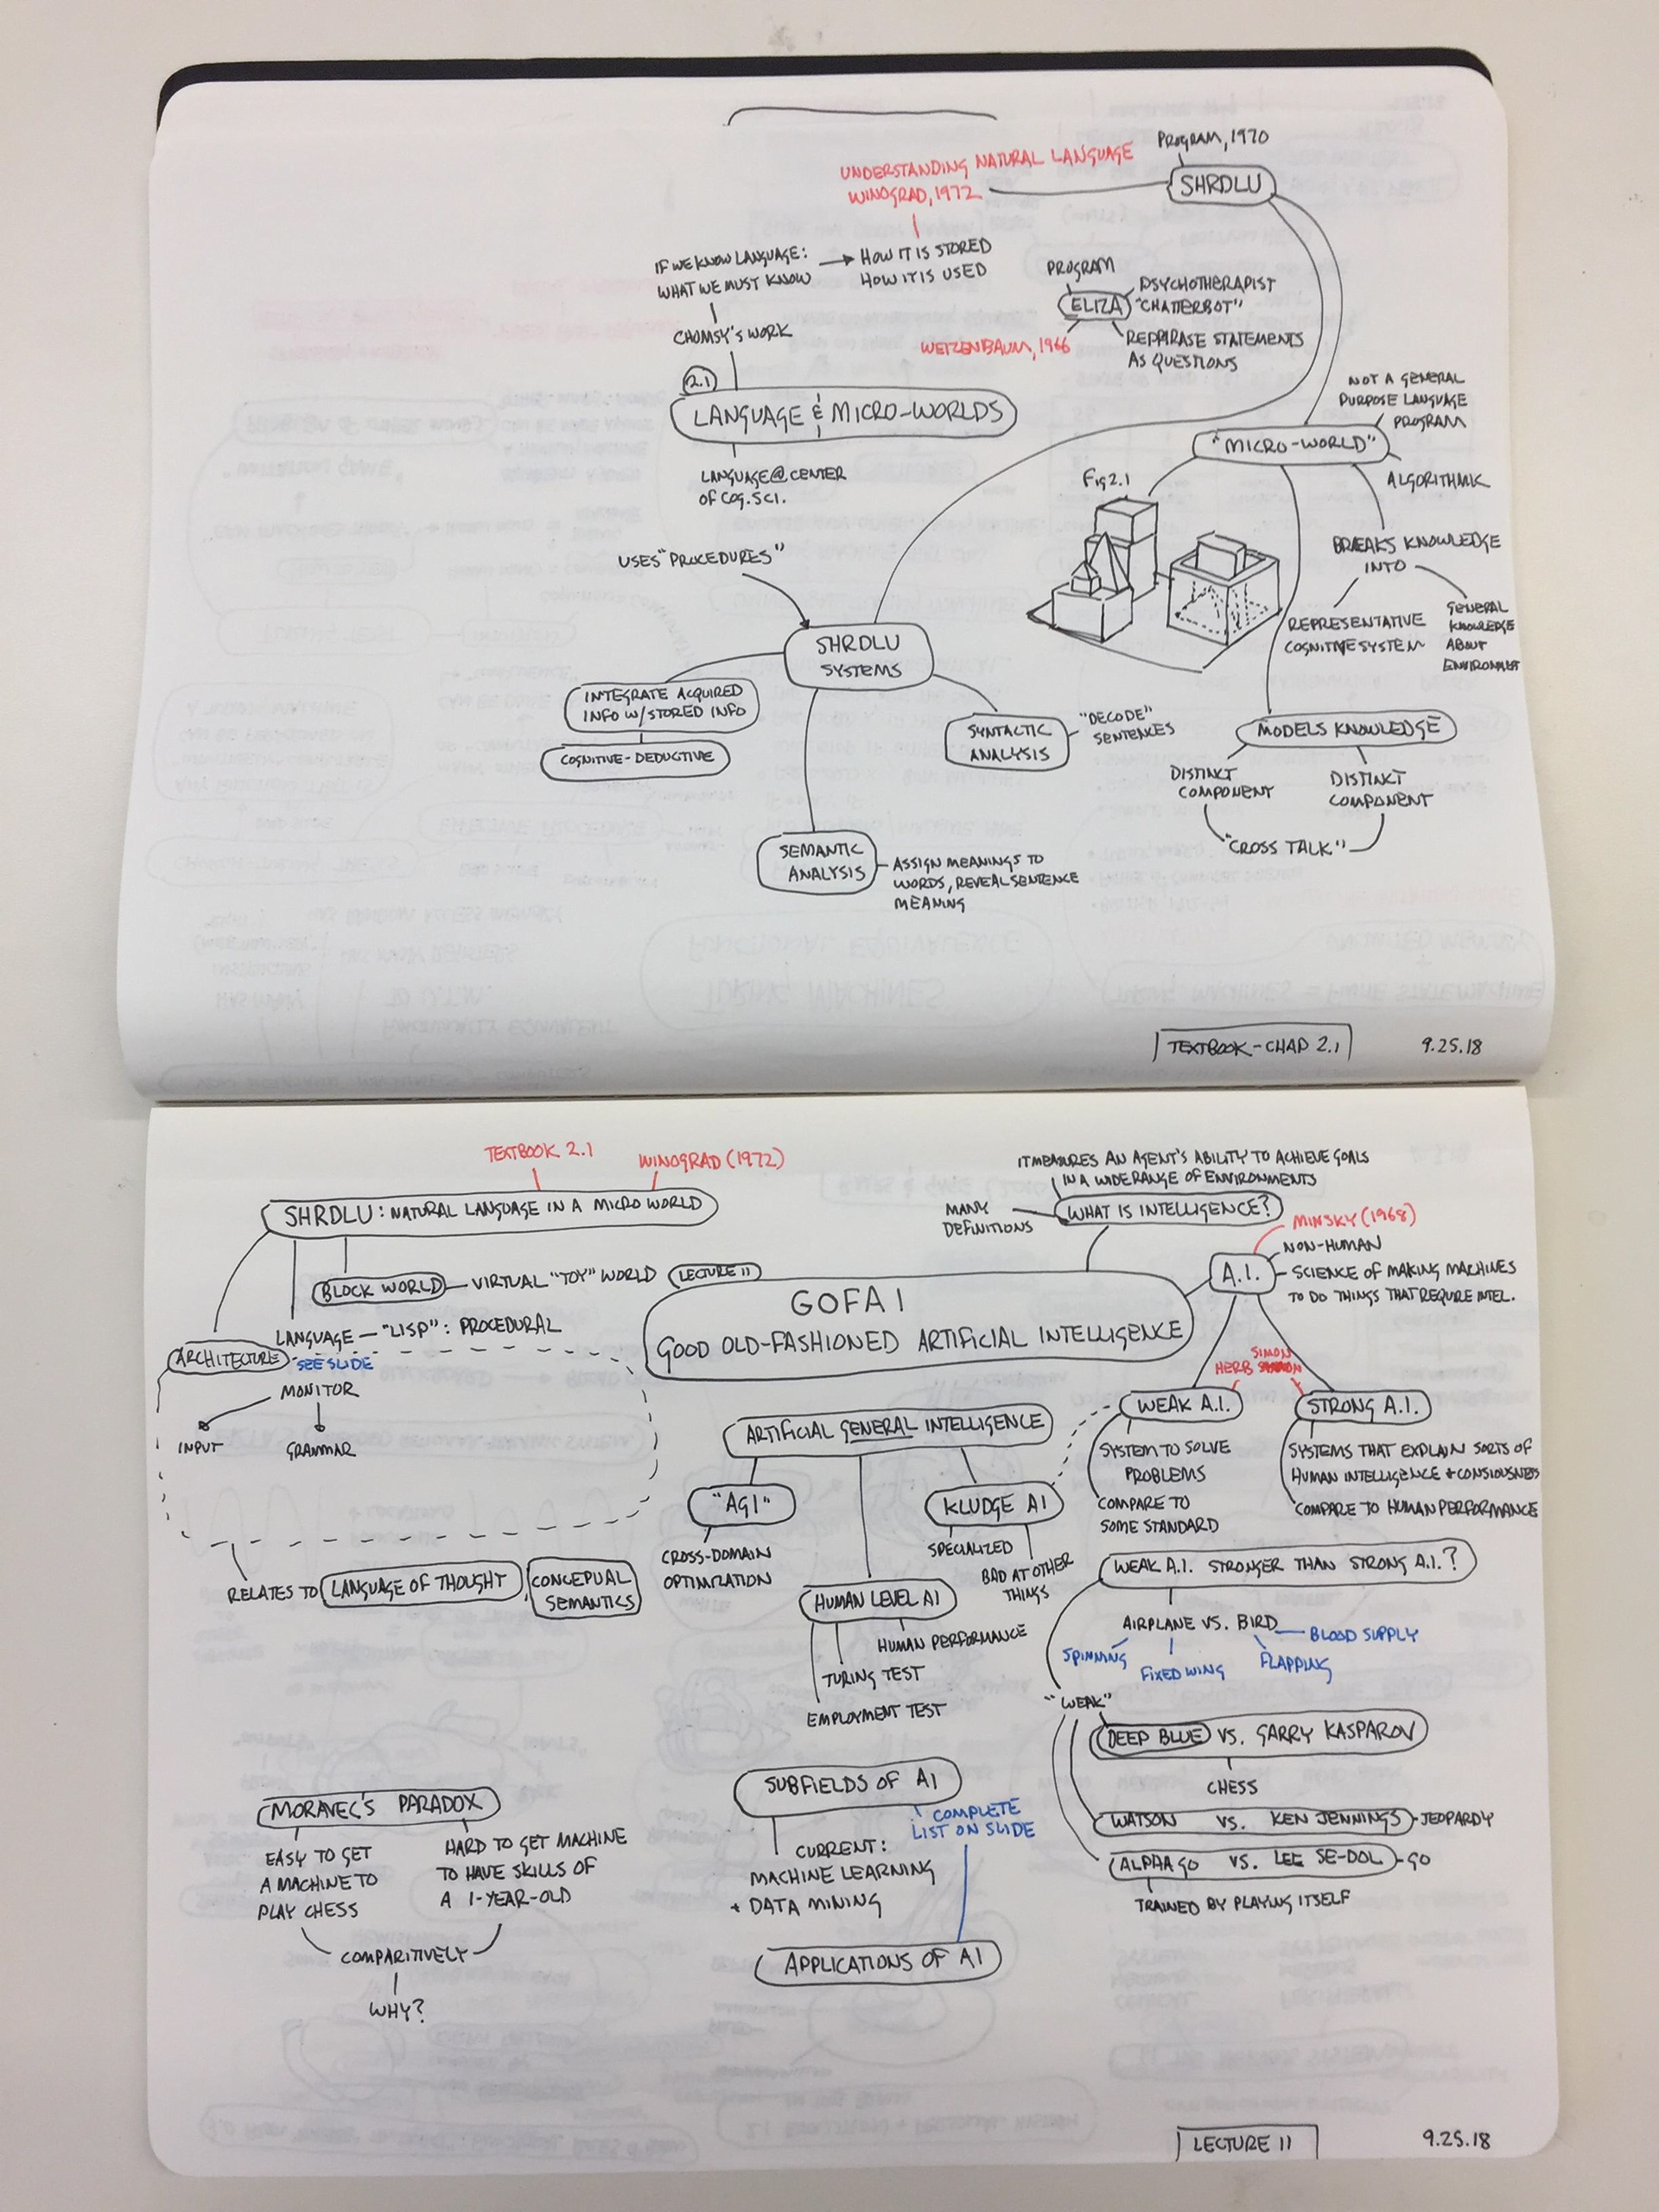 PROGRAM, 1970
SHRDLU
UNDERSTANDING NATURAL LANGUAGE
WINOGRAD, 1972
IF WE KNOW LANGUAGE:
WHAT WE MUST KNOW
HOW IT IS STORED
HOW IT IS USED
CHOMSY'S WORK
2.1
LANGUAGE & MICRO-WORLDS
LANGUAGE @ CENTER
OF COG. SCI.
PROGRAM
ELIZA
PSYCHOTHERAPIST
"CHATTERBOT"
WEIZENBAUM, 1966
REPHRASE STATEMENTS
AS QUESTIONS
NOT A GENERAL
PURPOSE LANGUAGE
PROGRAM
"MICRO-WORLD"
ALGORITHMIC
Fig 2.1
BREAKS KNOWLEDGE
INTO
REPRESENTATIVE
COGNITIVE SYSTEM
GENERAL
KNOWLEDGE
ABOUT
ENVIRONMENT
USES "PROCEDURES"
SHRDLU
SYSTEMS
INTEGRATE ACQUIRED
INFO W/ STORED INFO
COGNITIVE-DEDUCTIVE
SYNTACTIC
ANALYSIS
"DECODE"
SENTENCES
SEMANTIC
ANALYSIS
ASSIGN MEANINGS TO
WORDS, REVEAL SENTENCE
MEANING
MODELS KNOWLEDGE
DISTINCT
COMPONENT
DISTINCT
COMPONENT
"CROSS TALK"
TEXTBOOK - CHAP 2.1
9.25.18
TEXTBOOK 2.1
WINOGRAD (1972)
SHRDLU: NATURAL LANGUAGE IN A MICRO WORLD
BLOCK WORLD
VIRTUAL "TOY" WORLD
LANGUAGE - "LISP": PROCEDURAL
ARCHITECTURE
SEE SLIDE
MONITOR
INPUT
GRAMMAR
RELATES TO LANGUAGE OF THOUGHT, CONCEPUAL
SEMANTICS
IT MEASURES AN AGENT'S ABILITY TO ACHIEVE GOALS
IN A WIDE RANGE OF ENVIRONMENTS
MANY
DEFINITIONS
WHAT IS INTELLIGENCE?
LECTURE 11
GOFAI
GOOD OLD-FASHIONED ARTIFICIAL INTELLIGENCE
MINSKY (1968)
A.I.
NON-HUMAN
SCIENCE OF MAKING MACHINES
TO DO THINGS THAT REQUIRE INTEL.
SIMON
HERB
WEAK A.I.
SYSTEM TO SOLVE
PROBLEMS
COMPARE TO
SOME STANDARD
STRONG A.I.
SYSTEMS THAT EXPLAIN SORTS OF
HUMAN INTELLIGENCE + CONSIOUSNESS
COMPARE TO HUMAN PERFORMANCE
ARTIFICIAL GENERAL INTELLIGENCE
"AGI"
CROSS-DOMAIN
OPTIMIZATION
KLUDGE AI
SPECIALIZED
BAD AT OTHER
THINGS
HUMAN LEVEL AI
HUMAN PERFORMANCE
TURING TEST
EMPLOYMENT TEST
WEAK A.I. STRONGER THAN STRONG A.I.?
AIRPLANE VS. BIRD
SPINNING
FIXED WING
FLAPPING
BLOOD SUPPLY
"WEAK"
DEEP BLUE VS. GARRY KASPAROV
CHESS
WATSON VS. KEN JENNINGS - JEOPARDY
ALPHAGO VS. LEE SE-DOL - GO
TRAINED BY PLAYING ITSELF
MORAVEC'S PARADOX
EASY TO GET
A MACHINE TO
PLAY CHESS
HARD TO GET MACHINE
TO HAVE SKILLS OF
A 1-YEAR-OLD
COMPARITIVELY
WHY?
SUBFIELDS OF AI
CURRENT:
MACHINE LEARNING
+ DATA MINING
COMPLETE
LIST ON SLIDE
APPLICATIONS OF AI
LECTURE 11
9.25.18